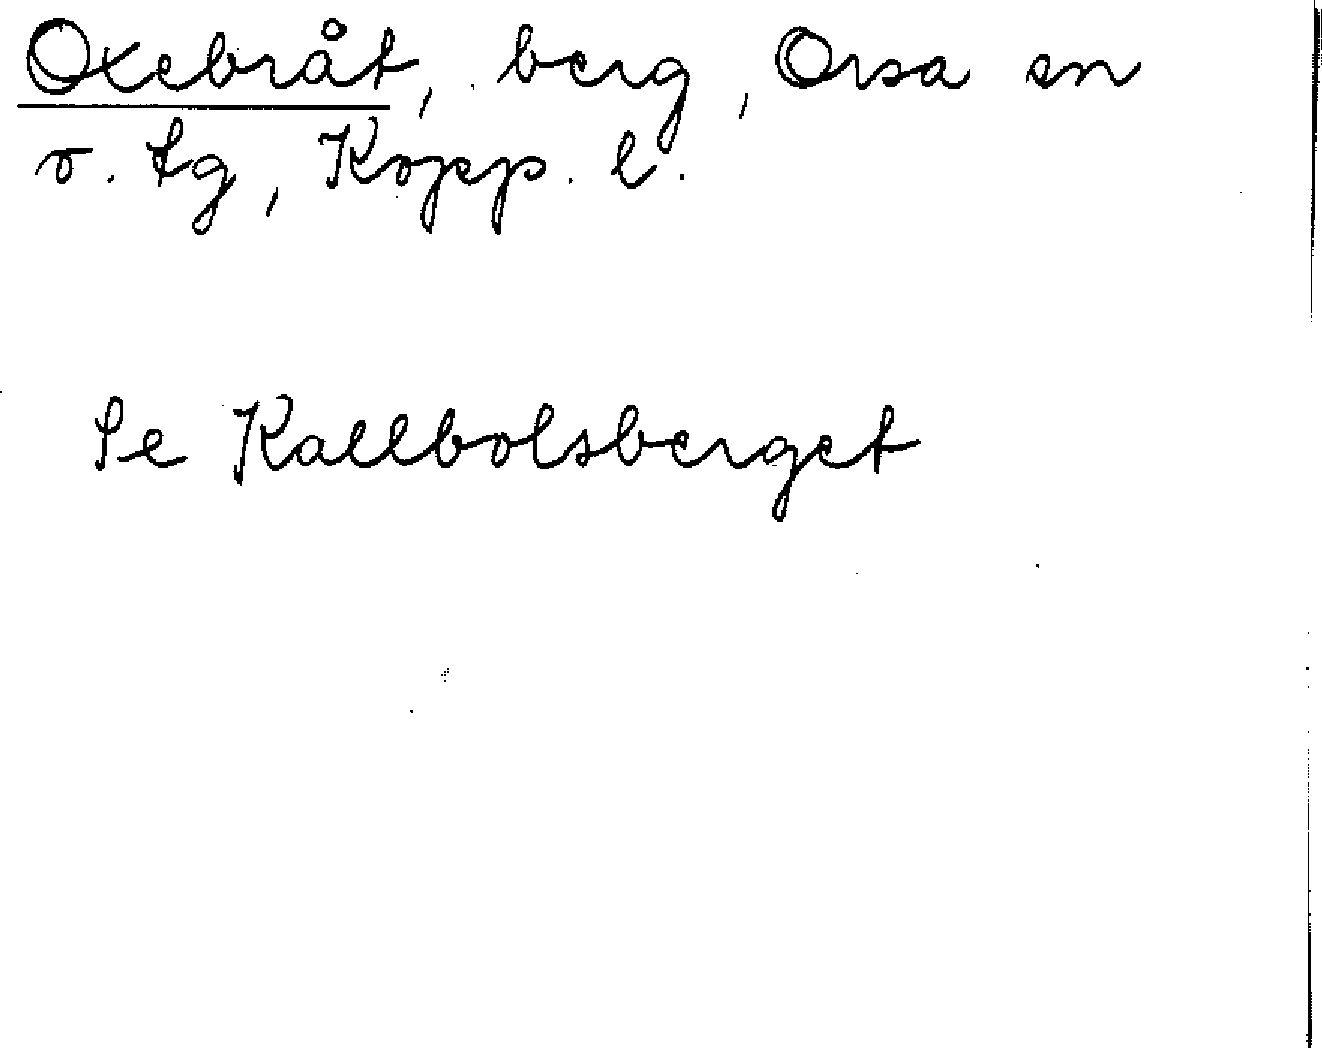 Oxebråt, berg, Orsa sn
o. tg, Kopp. l.
Se Kallbolsberget